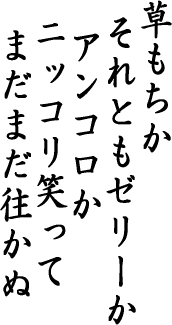 草もちか
それともゼリーか
アンコロか
ニッコリ笑って
まだまだ往かぬ